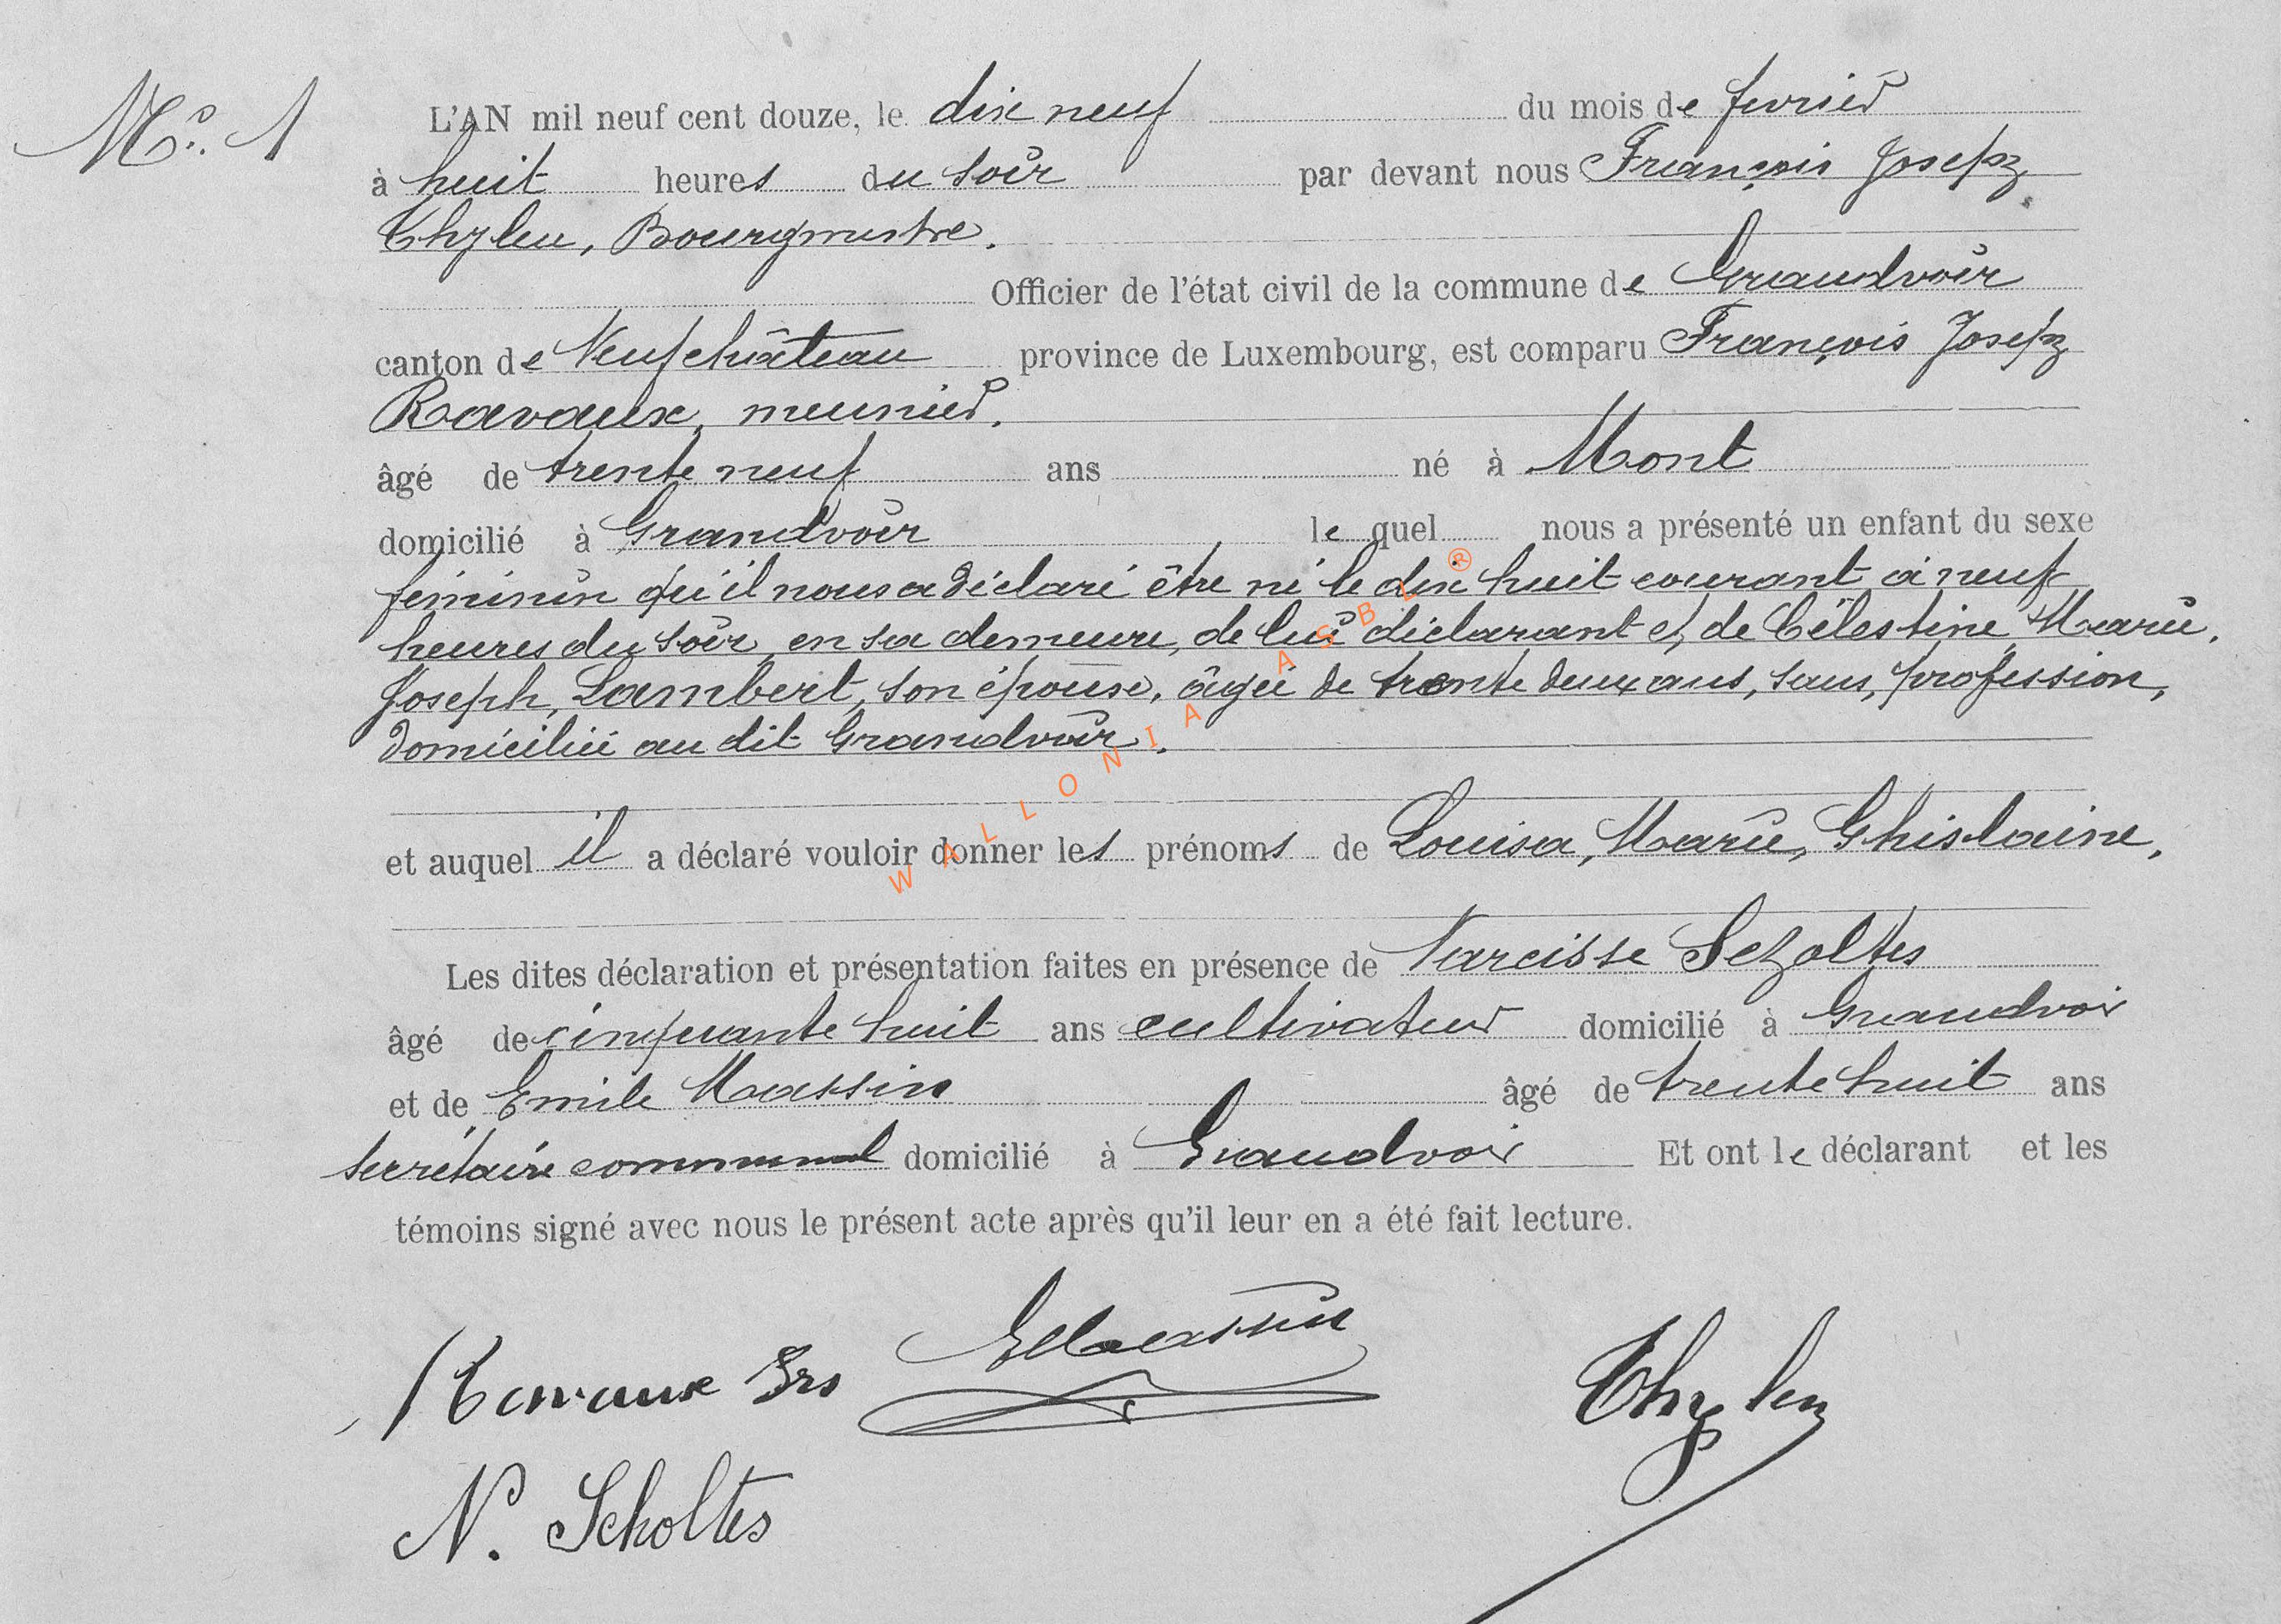 No. 1
L'AN mil neuf cent douze, le dix neuf du mois de fevrier
à huit heures du soir par devant nous François Joseph
Thylen, Bourgmestre.
Officier de l'état civil de la commune de Grandvoir
canton de Neufchâteau province de Luxembourg, est comparu François Joseph
Ravaux, meunier.
âgé de trente neuf ans né à Mont
domicilié à Grandvoir le quel nous a présenté un enfant du sexe
féminin qu'il nous a déclaré être né le dix huit courant à neuf
heures du soir, en sa demeure, de lui déclarant et de Célestine, Marie,
Joseph, Lambert, son épouse, âgée de trente deux ans, sans profession,
domiciliée au dit Grandvoir.
et auquel il a déclaré vouloir donner les prénoms de Louisa, Marie, Ghislaine,
Les dites déclaration et présentation faites en présence de Narcisse Scholtes
âgé de cinquante huit ans cultivateur domicilié à Grandvoir
et de Emile Massin âgé de trente huit ans
secrétaire communal domicilié à Grandvoir Et ont le déclarant et les
témoins signé avec nous le présent acte après qu'il leur en a été fait lecture.
Ravaux Frs EMassin Thylen
N. Scholtes
WALLONIA ASBL ®